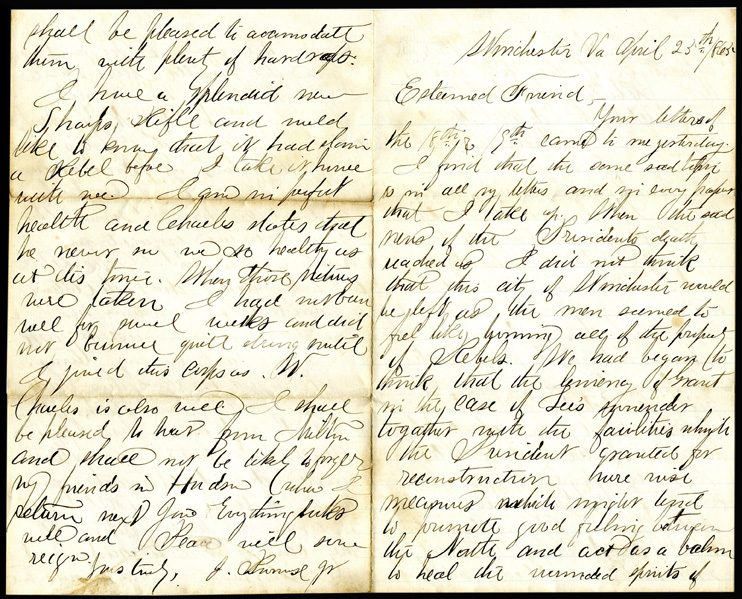 Winchester Va April 23th /865
Esteemed Friend,
Your letters of
the 18th & 19th came to me yesterday.
I find that the same sad
is in all my letters and in every paper
that I take up. When the sad
news of the Presidents death
reached us I did not think
that this city of Winchester would
be left, as the men seemed to
feel like burning all of the property
of Rebels. We had began to
think that the leniency of Grant
in the case of Lee's surrender
together with the facilities which
the President granted for
reconstruction were wise
measures which might tend
to promote good feeling between
the North and act as a balm
to heal the wounded spirits of
shall be pleased to acomodate
them with plent of hard
I have a splendid new
Sharps Rifle and would
like to know that it had slain
a Rebel before I take it home
with me. I am in perfect
health and Charles states that
he never saw me so healthy as
at this time. When those pictures
were taken I had not been
well for several weeks and did
not become quite strong until
I joined this corps as. W.
Charles is also well. I shall
be pleased to hear from Milton
and shall not be likely to forget
my friends in Hudson when I
return next June Everything looks
well and Peace will soon
reign.
Yours truly, J.